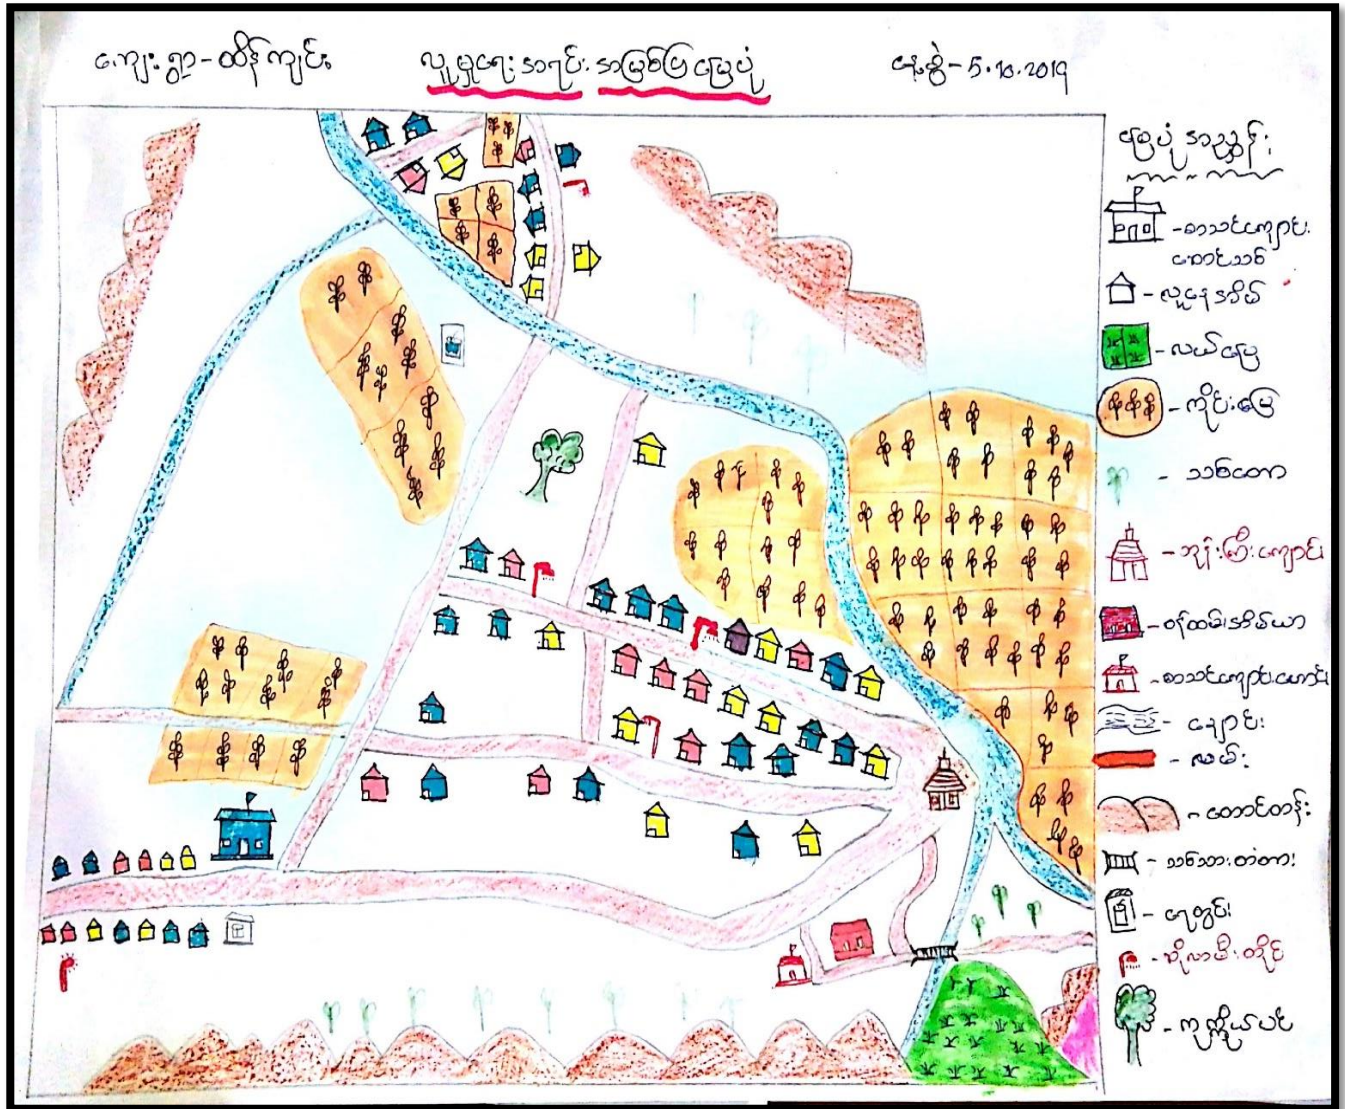 ကျေးရွာ - ထိန်ကျင်း
လူမှုရေးအရင်းအမြစ်ပြမြေပုံ
နေ့စွဲ - 5.10.2019
မြေပုံအညွှန်း
- စာသင်ကျောင်း
ဆောင်သစ်
- လူနေအိမ်
- လယ်မြေ
- ကိုင်းမြေ
- သစ်တော
- ဘုန်းကြီးကျောင်း
- ဝန်ထမ်းအိမ်ယာ
- စာသင်ကျောင်းဟောင်း
- ချောင်း
- လမ်း
- တောင်တန်း
- သစ်သားတံတား
- ရေတွင်း
- ဆိုလာမီးတိုင်
- ကုက္ကိုပင်